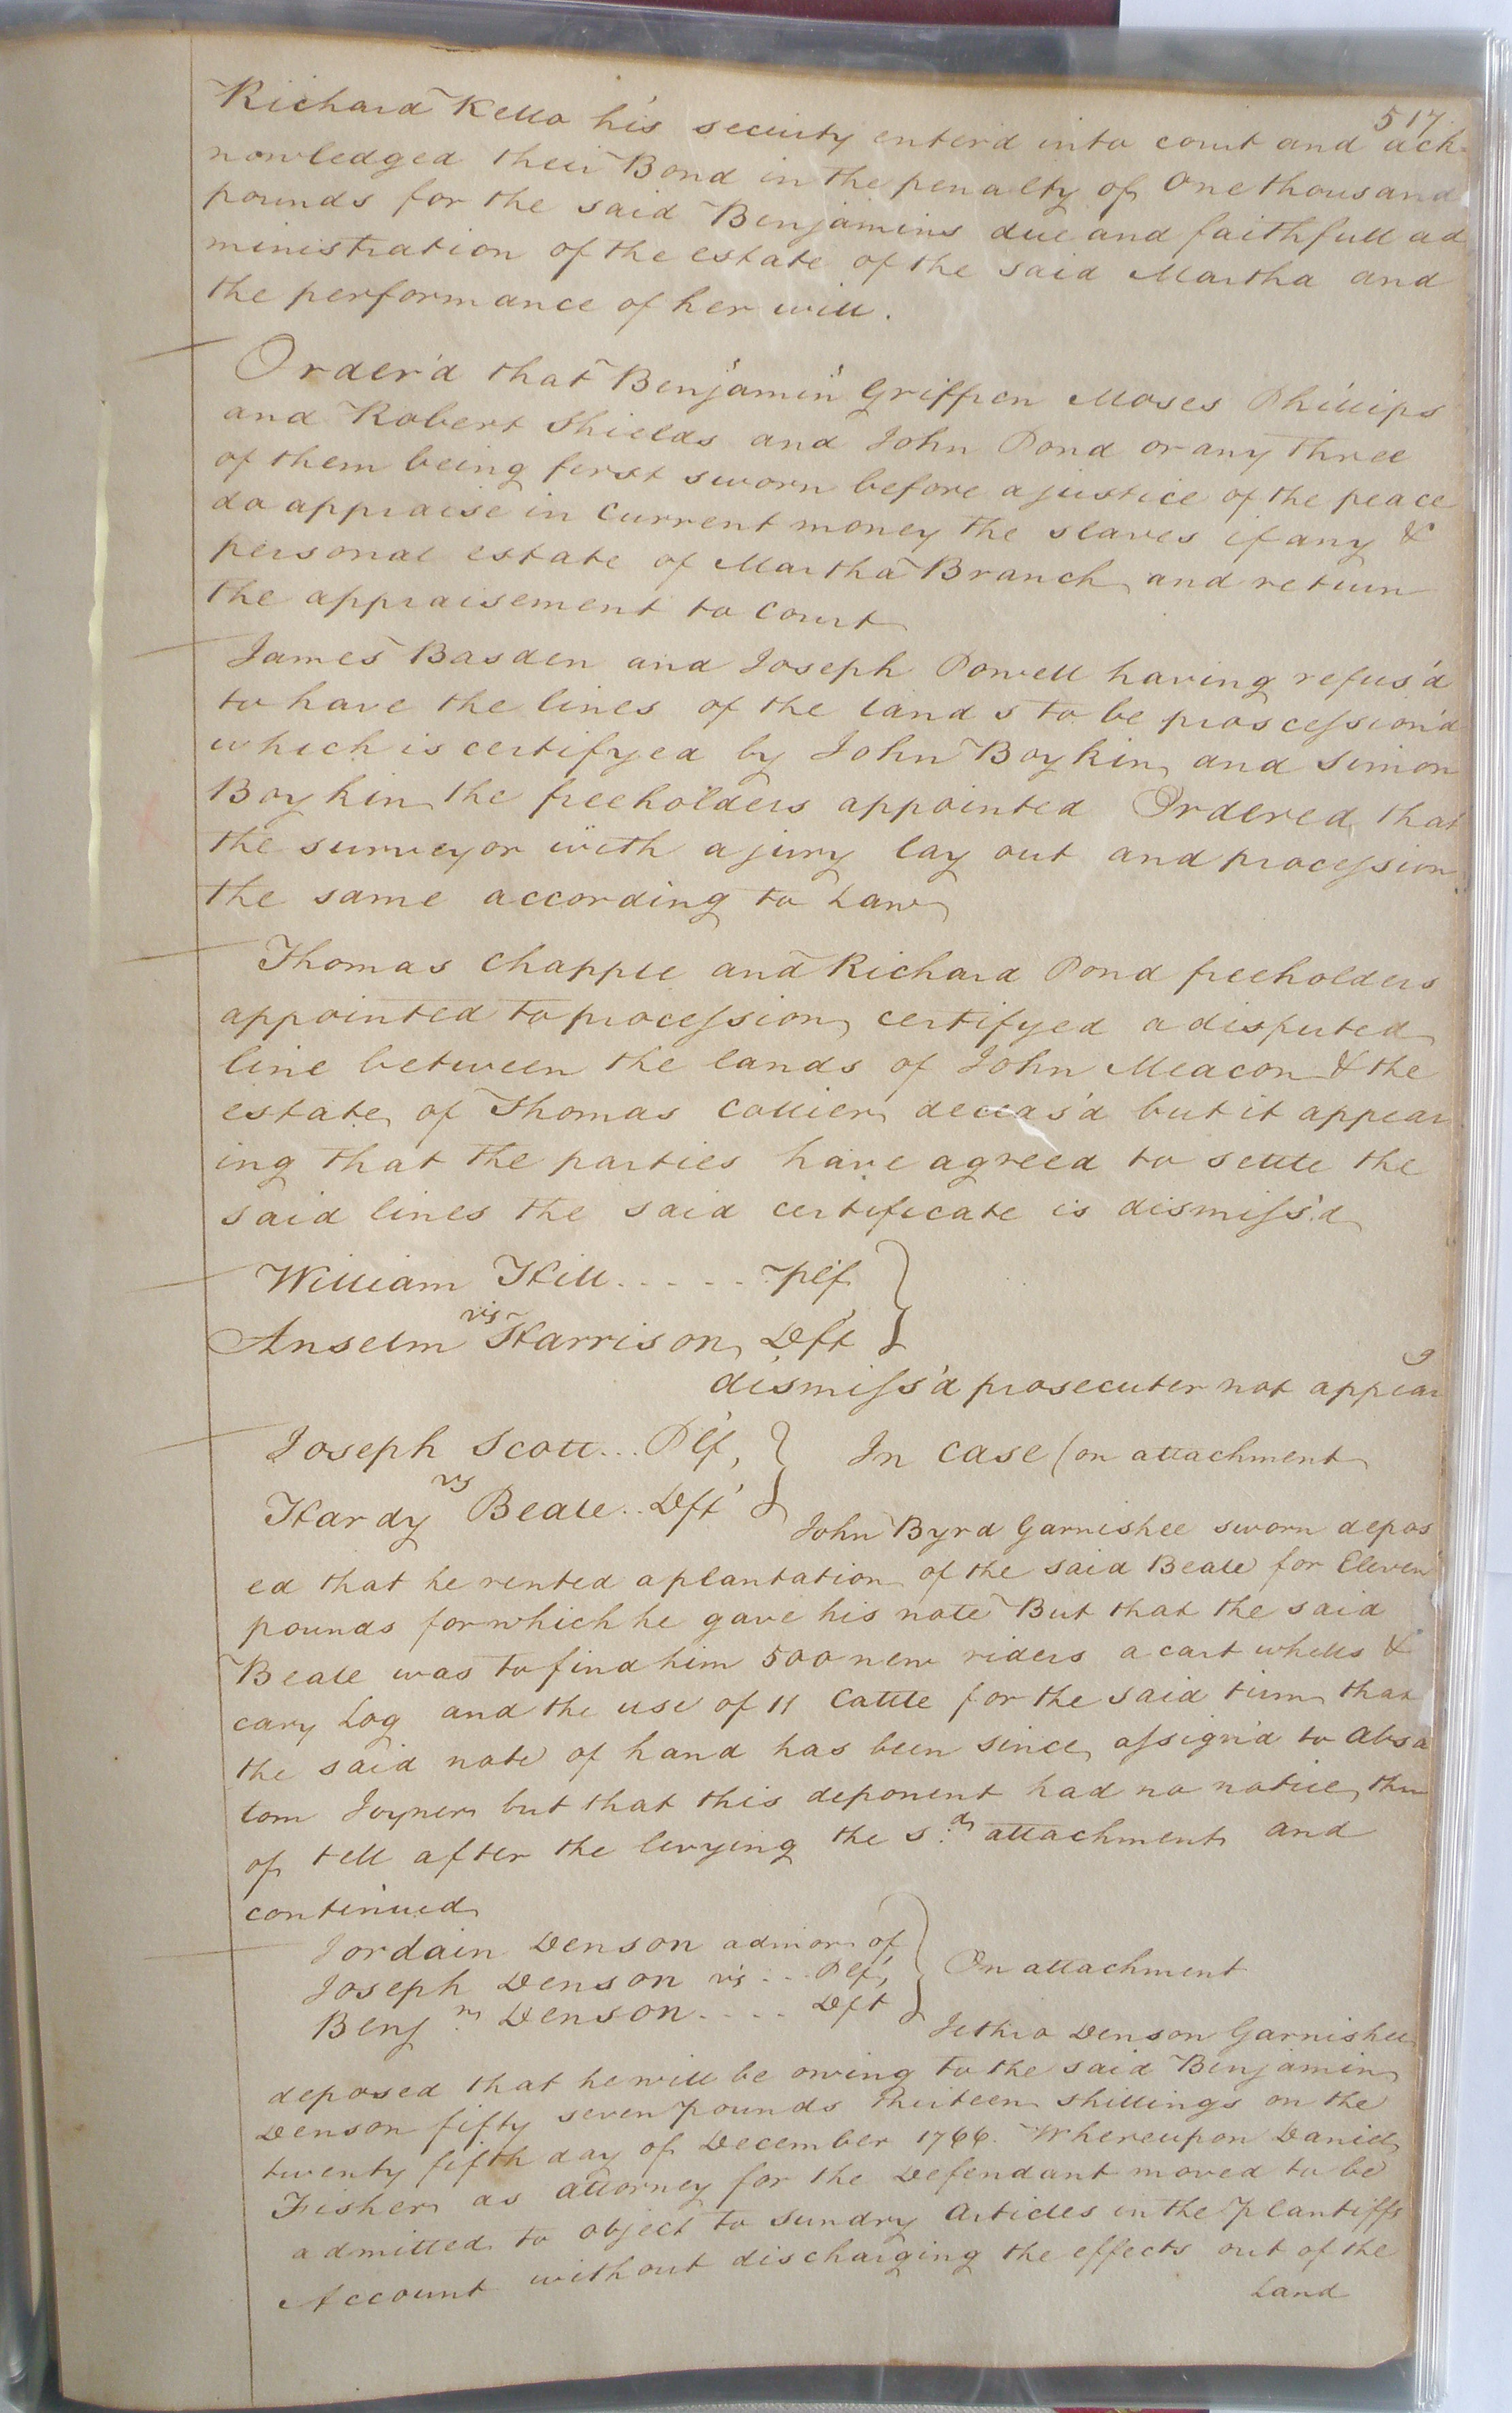 517
Richard Kello his security enter'd into court and ack-
nowledged their Bond in the penalty of One thousand
pounds for the said Benjamins due and faithfull ad
ministration of the estate of the said Martha and
the performance of her will.
Order'd that Benjamin Griffen Moses Phillips
and Robert Shields and John Pond or any three
of them being first sworn before a justice of the peace
do appraise in Current money the slaves if any &
personal estate of Martha Branch and return
the appraisement to Court
James Basden and Joseph Powell having refus'd
to have the lines of the lands to be proscession'd
which is certifyed by John Boykin and Simon
Boykin the freeholders appointed Ordered that
the surveyor with a jury lay out and procession
the same according to Law
Thomas Chapple and Richard Pond freeholders
appointed to procession certifyed a disputed
line between the lands of John Meacon & the
estate of Thomas Collier deceas'd but it appear
ing that the parties have agreed to settle the
said lines the said certificate is dismiss'd
William Hill..... Plf
vs
Anselm Harrison Dft
dismiss'd prosecuter not appear g
Joseph Scott... Plf, In Case (on attachment
vs
Hardy Beale.. Dft
John Byrd Garnishee sworn depos
ed that he rented a plantation of the said Beale for Eleven
pounds for which he gave his note But that the said
Beale was to find him 500 new riders a cart whells &
cary Log and the use of 11 Cattle for the said tirm that
the said note of hand has been since assign'd to Absa
lom Joyner but that this deponent had no notice thre
of till after the levying the s.d attachment and
continued
Jordain Denson admor of
Joseph Denson vs... Plf, On attachment
Benj.n Denson.... Dft
Jethro Denson Garnishee
deposed that he will be owing to the said Benjamin
Denson fifty seven pounds thirteen shillings on the
twenty fifth day of December 1766. Whereupon Daniel
Fisher as attorney for the Defendant moved to be
admitted to object to sundry Articles in the plantiffs
Account without discharging the effects out of the
Land